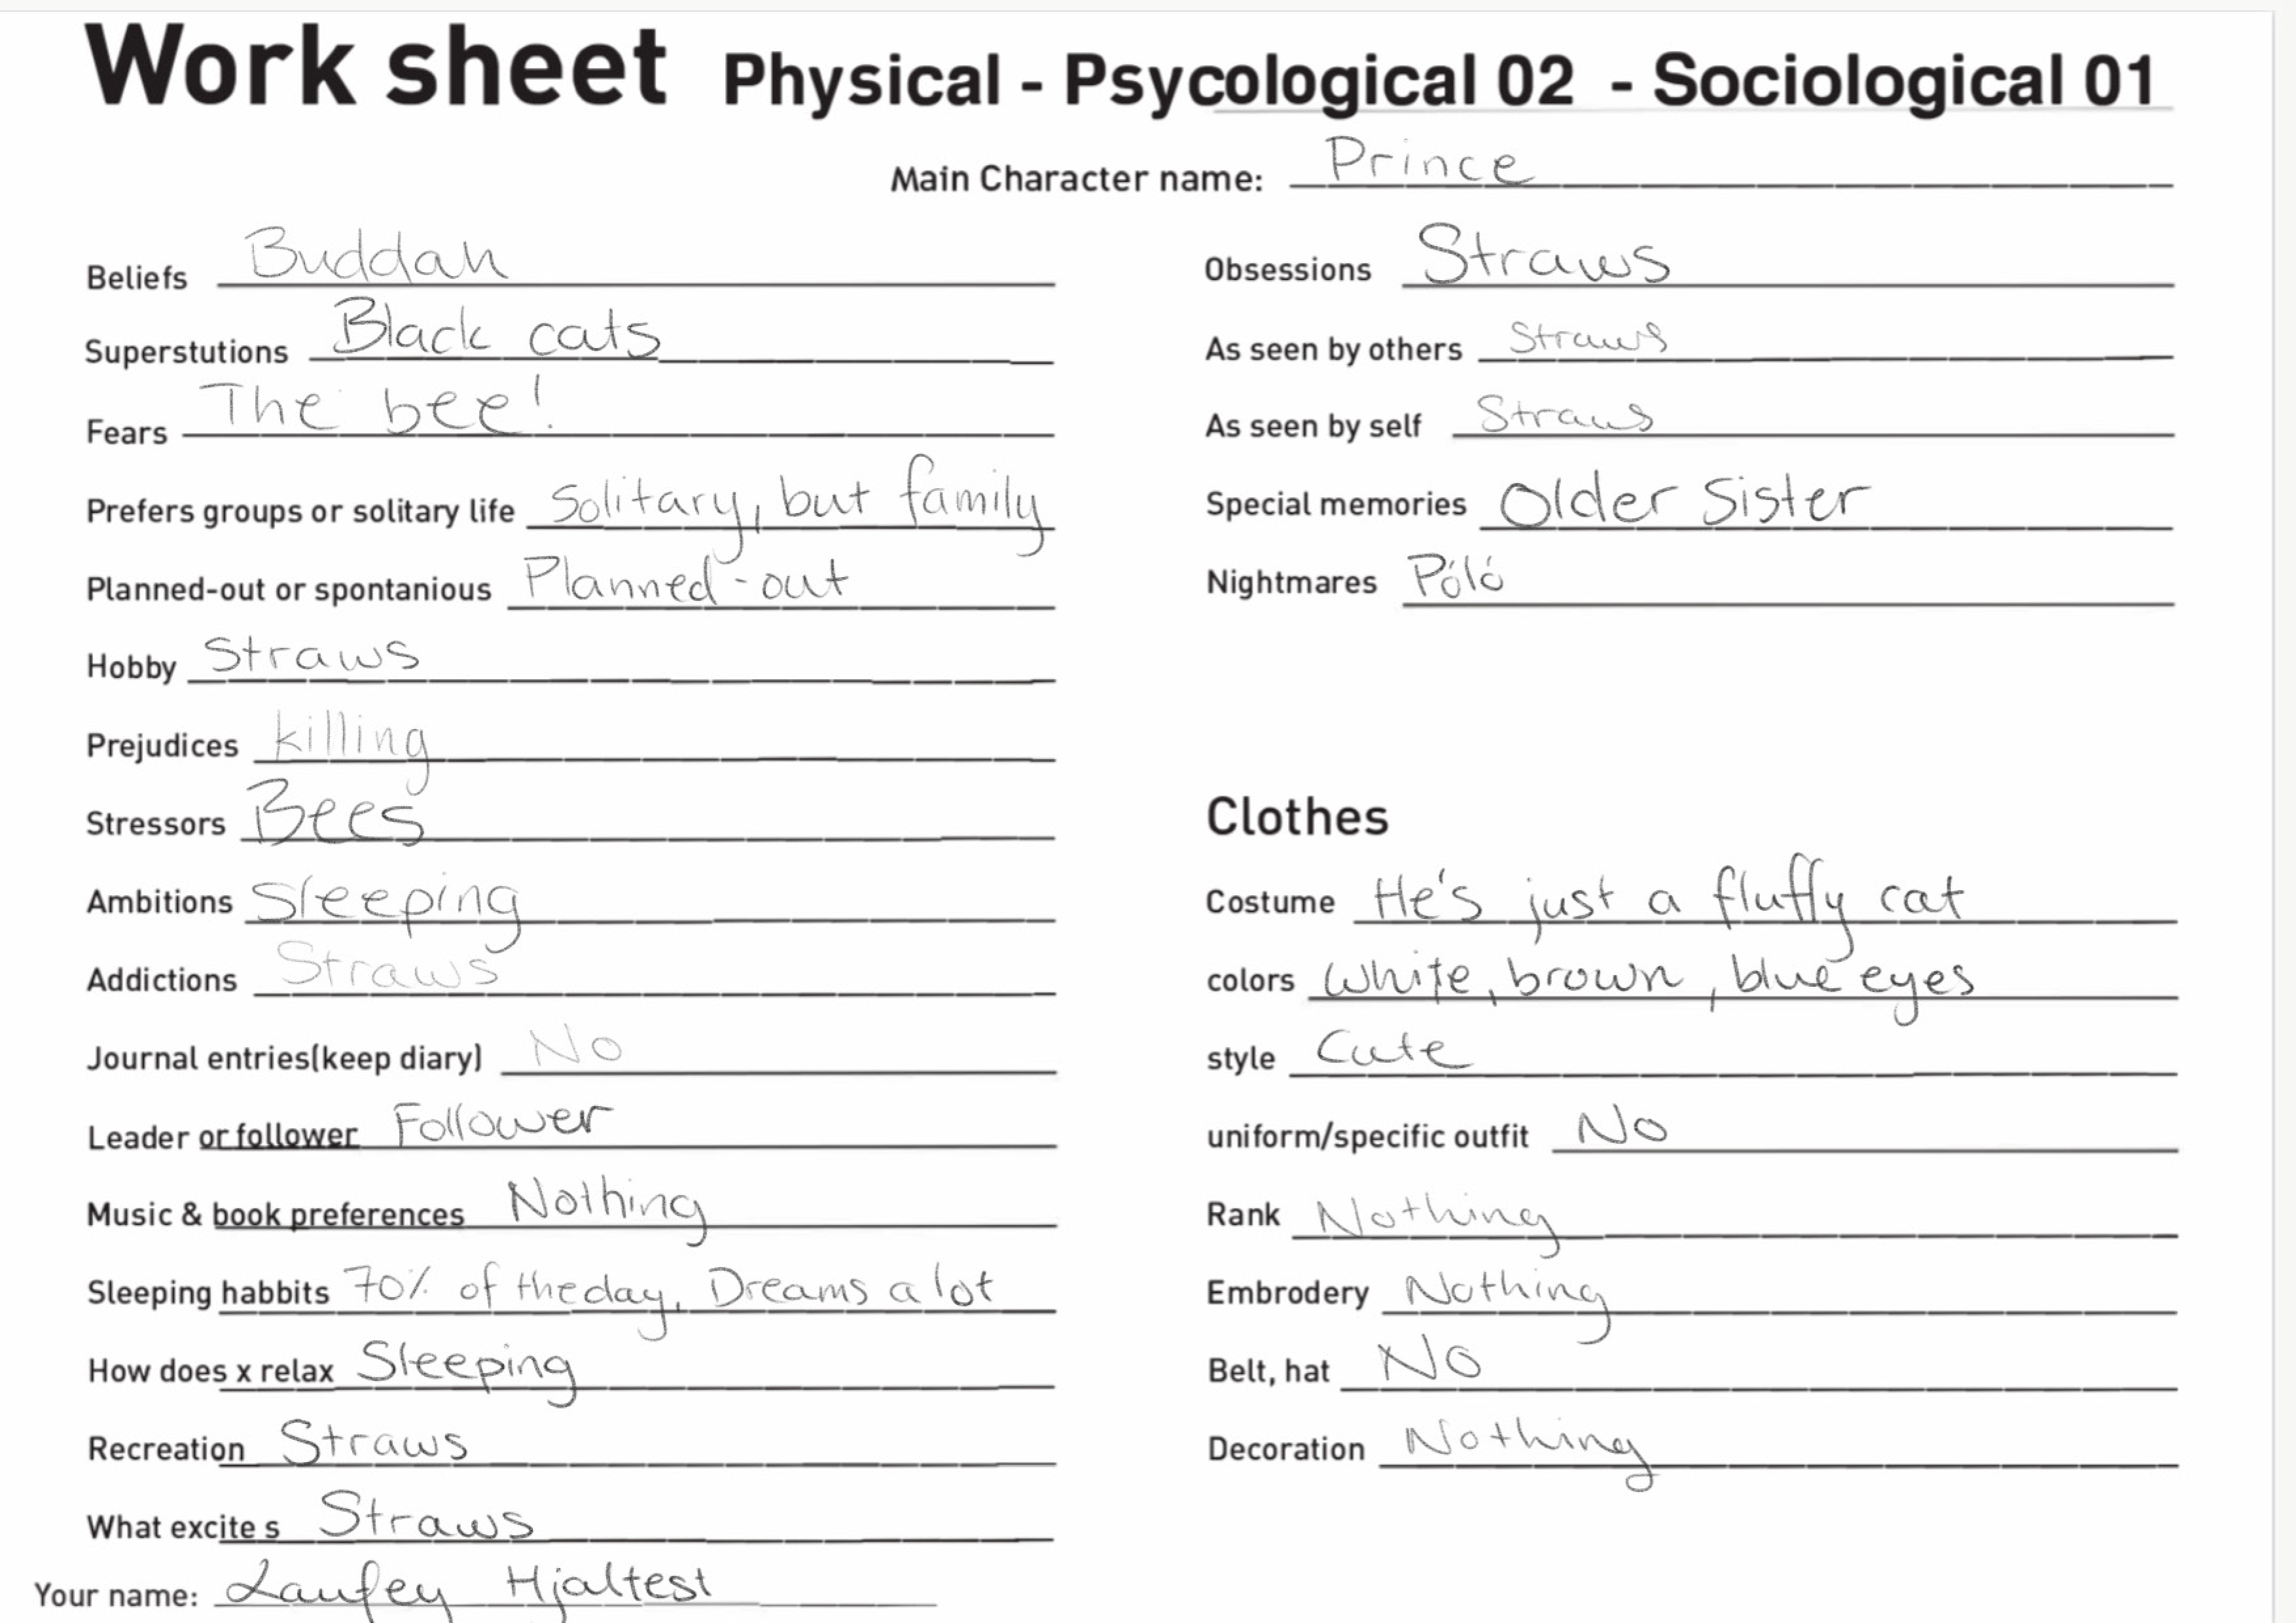 Work sheet Physical - Psycological 02 - Sociological 01
Main Character name: Prince
Beliefs Buddah
Superstutions Black cats
Fears The bee!
Prefers groups or solitary life Solitary, but family
Planned-out or spontanious Planned-out
Hobby Straws
Prejudices killing
Stressors Bees
Ambitions Sleeping
Addictions Straws
Journal entries(keep diary) No
Leader or follower Follower
Music & book preferences Nothing
Sleeping habbits 70% of the day, Dreams a lot
How does x relax Sleeping
Recreation Straws
What excite s Straws
Your name: Laufey Hjaltest
Obsessions Straws
As seen by others Straws
As seen by self Straws
Special memories Older Sister
Nightmares Póló
Clothes
Costume He's just a fluffy cat
colors White, brown, blue eyes
style Cute
uniform/specific outfit No
Rank Nothing
Embrodery Nothing
Belt, hat No
Decoration Nothing